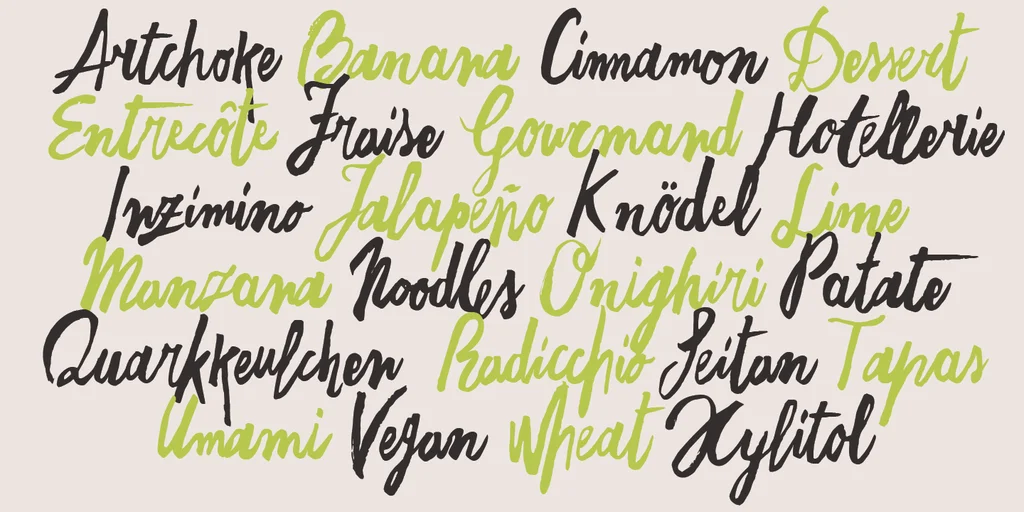 Artchoke Banana Cinnamon Dessert
Entrecôte Fraise Gourmand Hotellerie
Inzimino Jalapeño Knödel Lime
Manzana Noodles Onighiri Patate
Quarkkeulchen Radicchio Seitan Tapas
Umami Vegan Wheat Xylitol